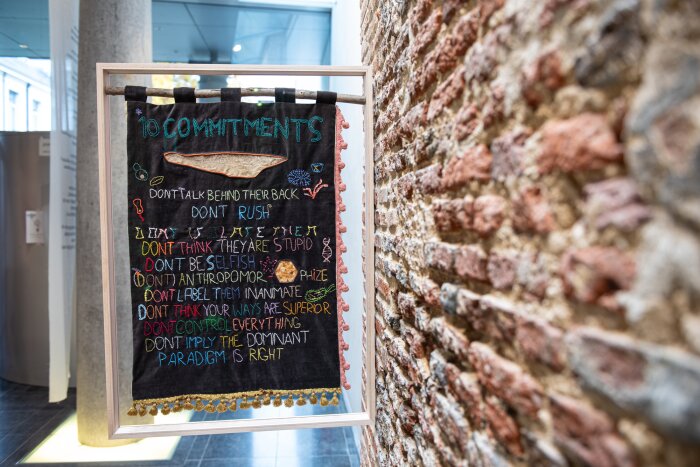 10 COMMITMENTS
DONT TALK BEHIND THEIR BACK
DONT RUSH
DONT THINK THEY ARE STUPID
DONT BE SELFISH
(DONT) ANTHROPOMOR PHIZE
DONT LABEL THEM INANIMATE
DONT THINK YOUR WAYS ARE SUPERIOR
DONT CONTROL EVERYTHING
DONT IMPLY THE DOMINANT
PARADIGM IS RIGHT